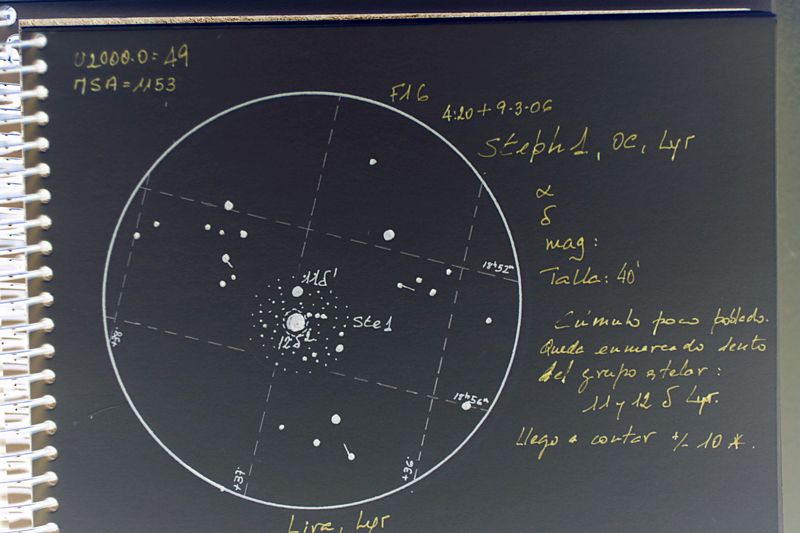 U2000.0=49
MSA=1153
F16
4:20+9·3·06
Steph1, OC, Lyr
α
δ
mag:
Talla: 40'
11δ¹
Ste1
12δ²
18ʰ52ᵐ
18ʰ56ᵐ
+38°
+37°
+36°
Cúmulo poco poblado.
Queda enmarcado dento
del grupo stelar:
11 y 12 δ Lyr.
Llego a contar +/- 10 *.
Lira, Lyr